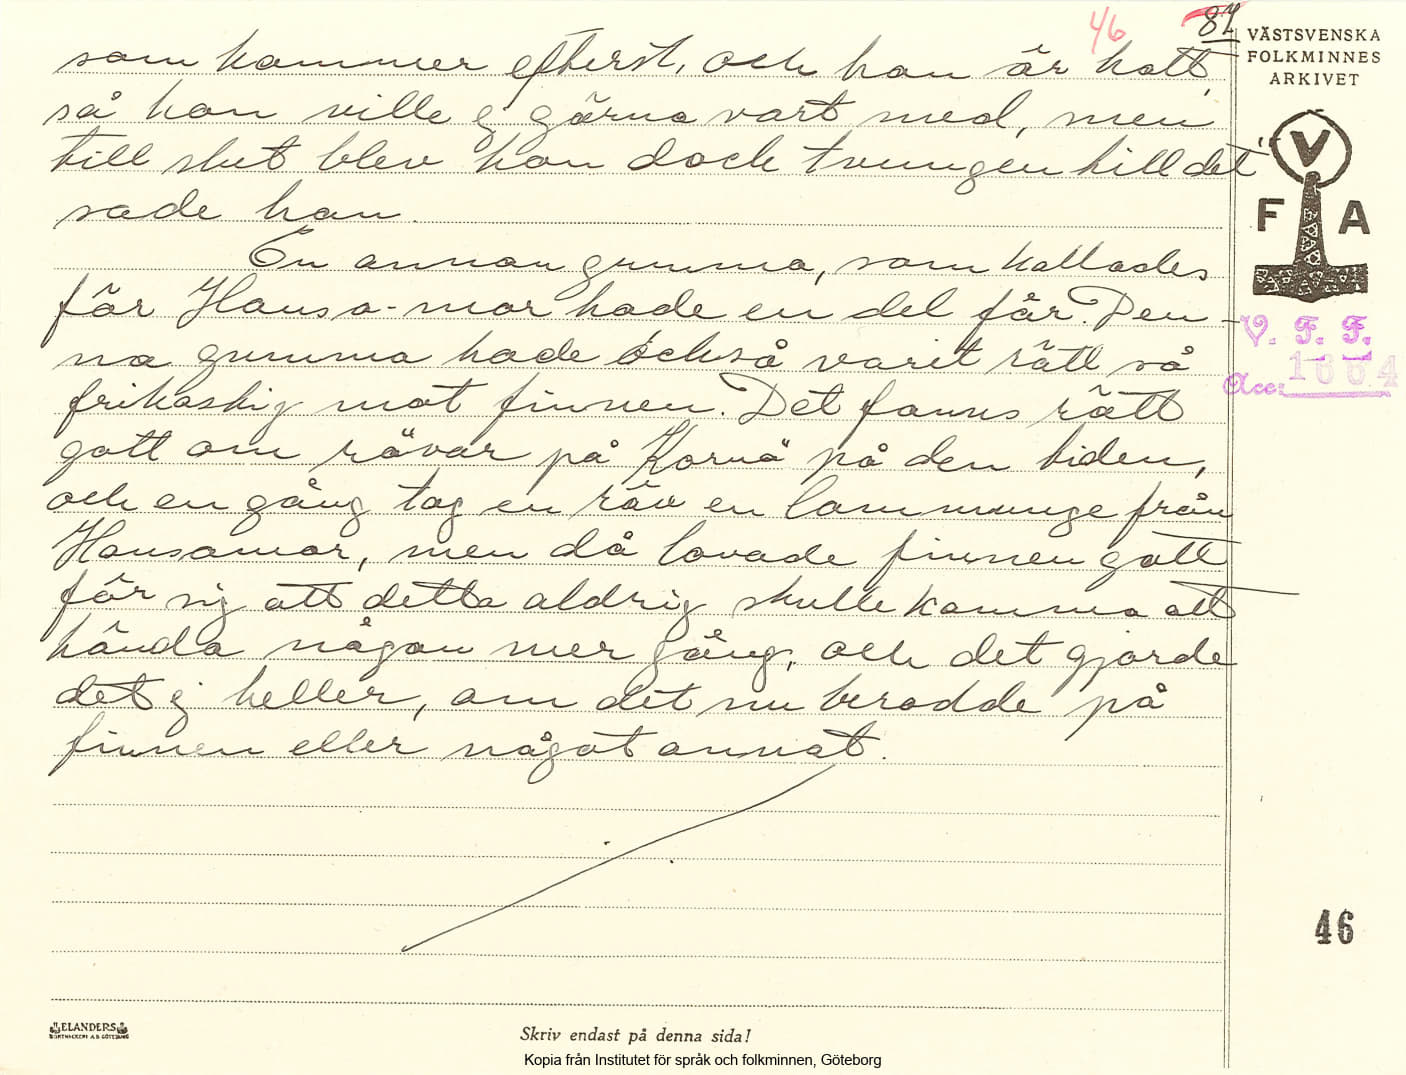 46
84
VÄSTSVENSKA
FOLKMINNES
ARKIVET
V
F A
V. F. F.
Acc: 1664
som kommer efterst, och han är halt,
så han ville ej gärna vart med, men
till slut blev han dock tvungen till det
sade han.
En annan gumma, som kallades
för Hansa-mor hade en del får. Den-
na gumma hade också varit rätt så
frikostig mot finnen. Det fanns rätt
gott om rävar på Kornö på den tiden,
och en gång tog en räv en lammunge från
Hansamor, men då lovade finnen gott
för sig att detta aldrig skulle komma att
hända någon mer gång, och det gjorde
det ej heller, om det nu berodde på
finnen eller något annat.
46
ELANDERS
BOKTRYCKERI A.B. GÖTEBORG
Skriv endast på denna sida!
Kopia från Institutet för språk och folkminnen, Göteborg